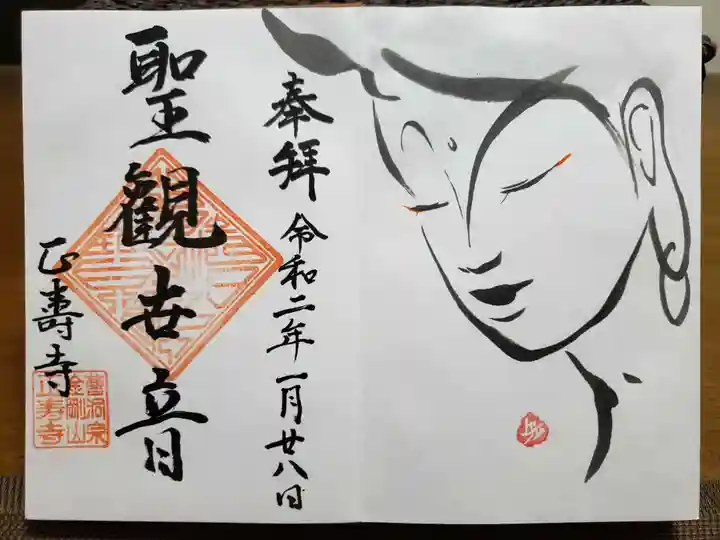 奉拝
令和二年一月廿八日
聖観世音
正壽寺
曹洞宗
金剛山
正寿寺